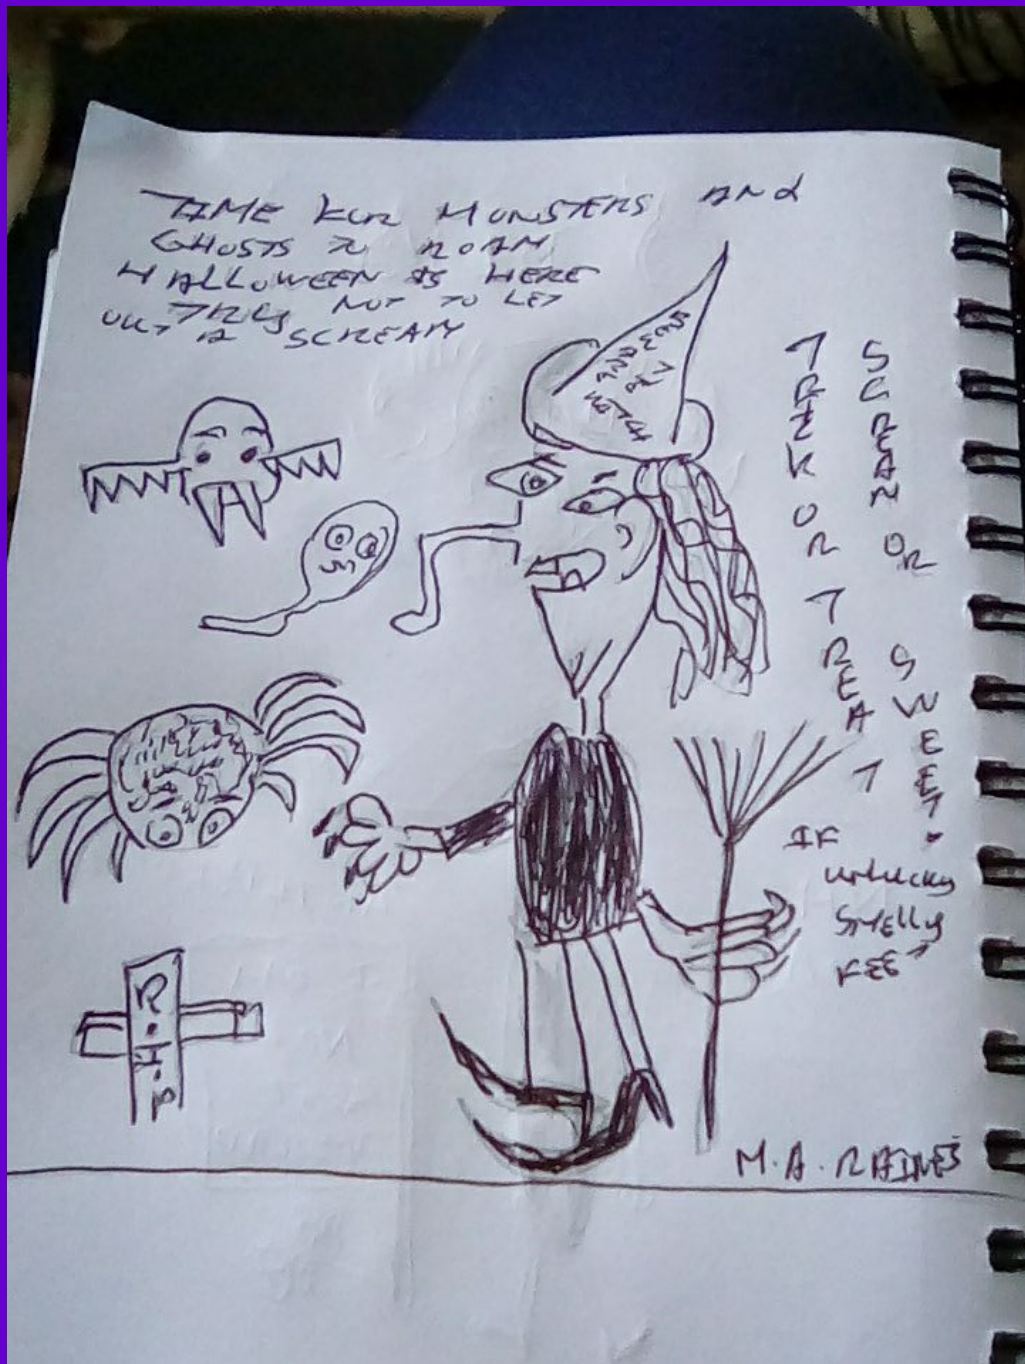 TIME FOR MONSTERS AND
GHOSTS TO ROAM
HALLOWEEN IS HERE
TRY NOT TO LET
OUT A SCREAM
TRIK OR TREAT
SCREAM OR SWEET.
IF
unlucky
SMElly
FEET
R.I.P
M.A.RAINES